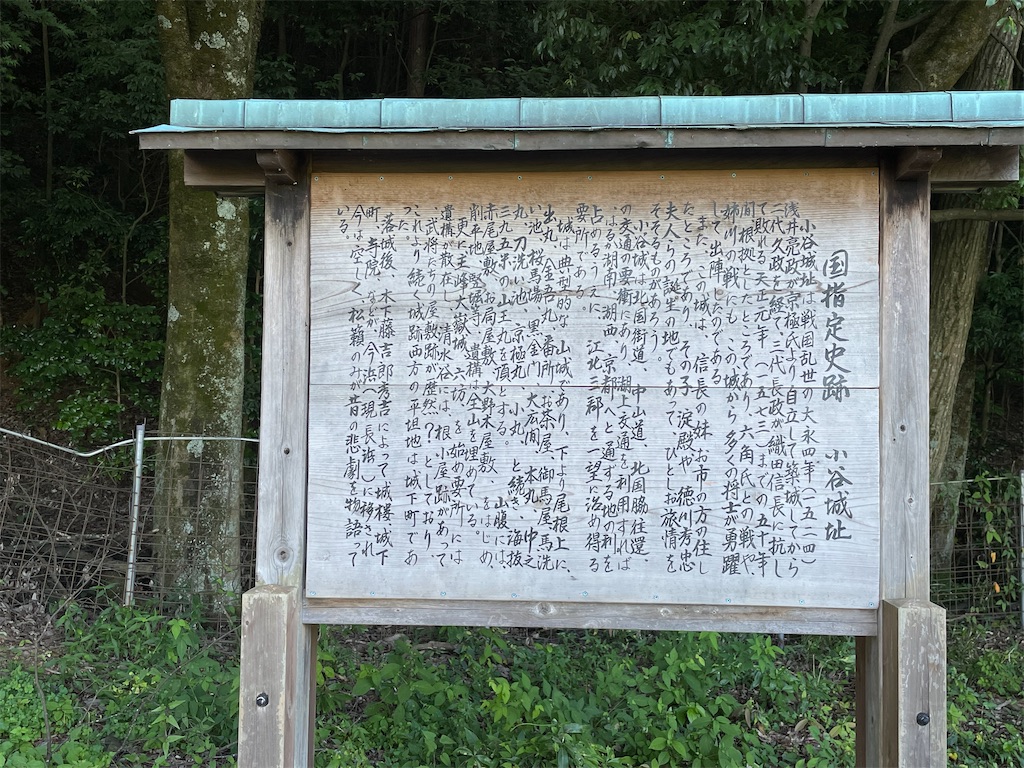 国指定史跡 小谷城址
小谷城址は戦国乱世の大永四年(一五二四)
浅井亮政が京極氏より自立して築城してから
二代久政を経て、三代長政が織田信長に抗し
て敗れる天正元年(一五七三)までの五十年
間、根拠としたところであり、六角氏との戦や、
姉川の戦にも、この城から多くの将士が勇躍
して出陣したのである
また、この城は、信長の妹、お市の方の住し
たところであり、その子、淀殿や、徳川秀忠
夫人らの誕生の地でもあって、ひとしお旅情を
そそるものがあろう。
小谷城は北国街道、中山道、北国脇往還、
の交通の要衝にあり、湖上交通を利用すれば
はるか湖南、湖西、京都へと通ずる地の利を
占めるうえに、江北三郡を一望に治め得る
要所である
城は典型的な山城であり、下より尾根上に、
出丸、金吾丸、番所、お茶屋、御馬屋、馬洗
い池、桜馬場、黒金門、大広間、本丸、中之
丸、刀洗い池、京極丸、小丸、と続き、海抜
三九五米の山王丸を頂とする。山腹には、
赤尾屋敷、お局屋敷、大野木屋敷、をはじめ、
削平地、竪堀等、遺構は全山を埋めている。
更に主峰大嶽城、六坊、を始め要所には
遺構が散在し、清水谷には、根小屋跡があって
、武将たちの屋敷跡が歴然?としており、
これより続く城跡西方の平坦地は、城下町であ
った
落城後、木下藤吉郎秀吉によって、城楼、城下
町、寺院、などが、今浜(現長浜)に移され
今は空しく、松籟のみが昔の悲劇を物語って
いる。